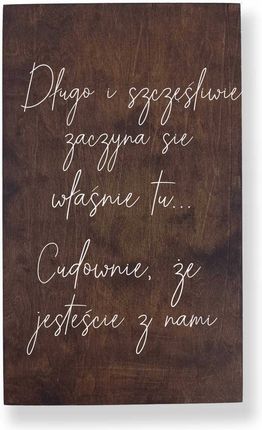 Długo i szczęśliwie
zaczyna sie
właśnie tu...
Cudownie, że
jesteście z nami